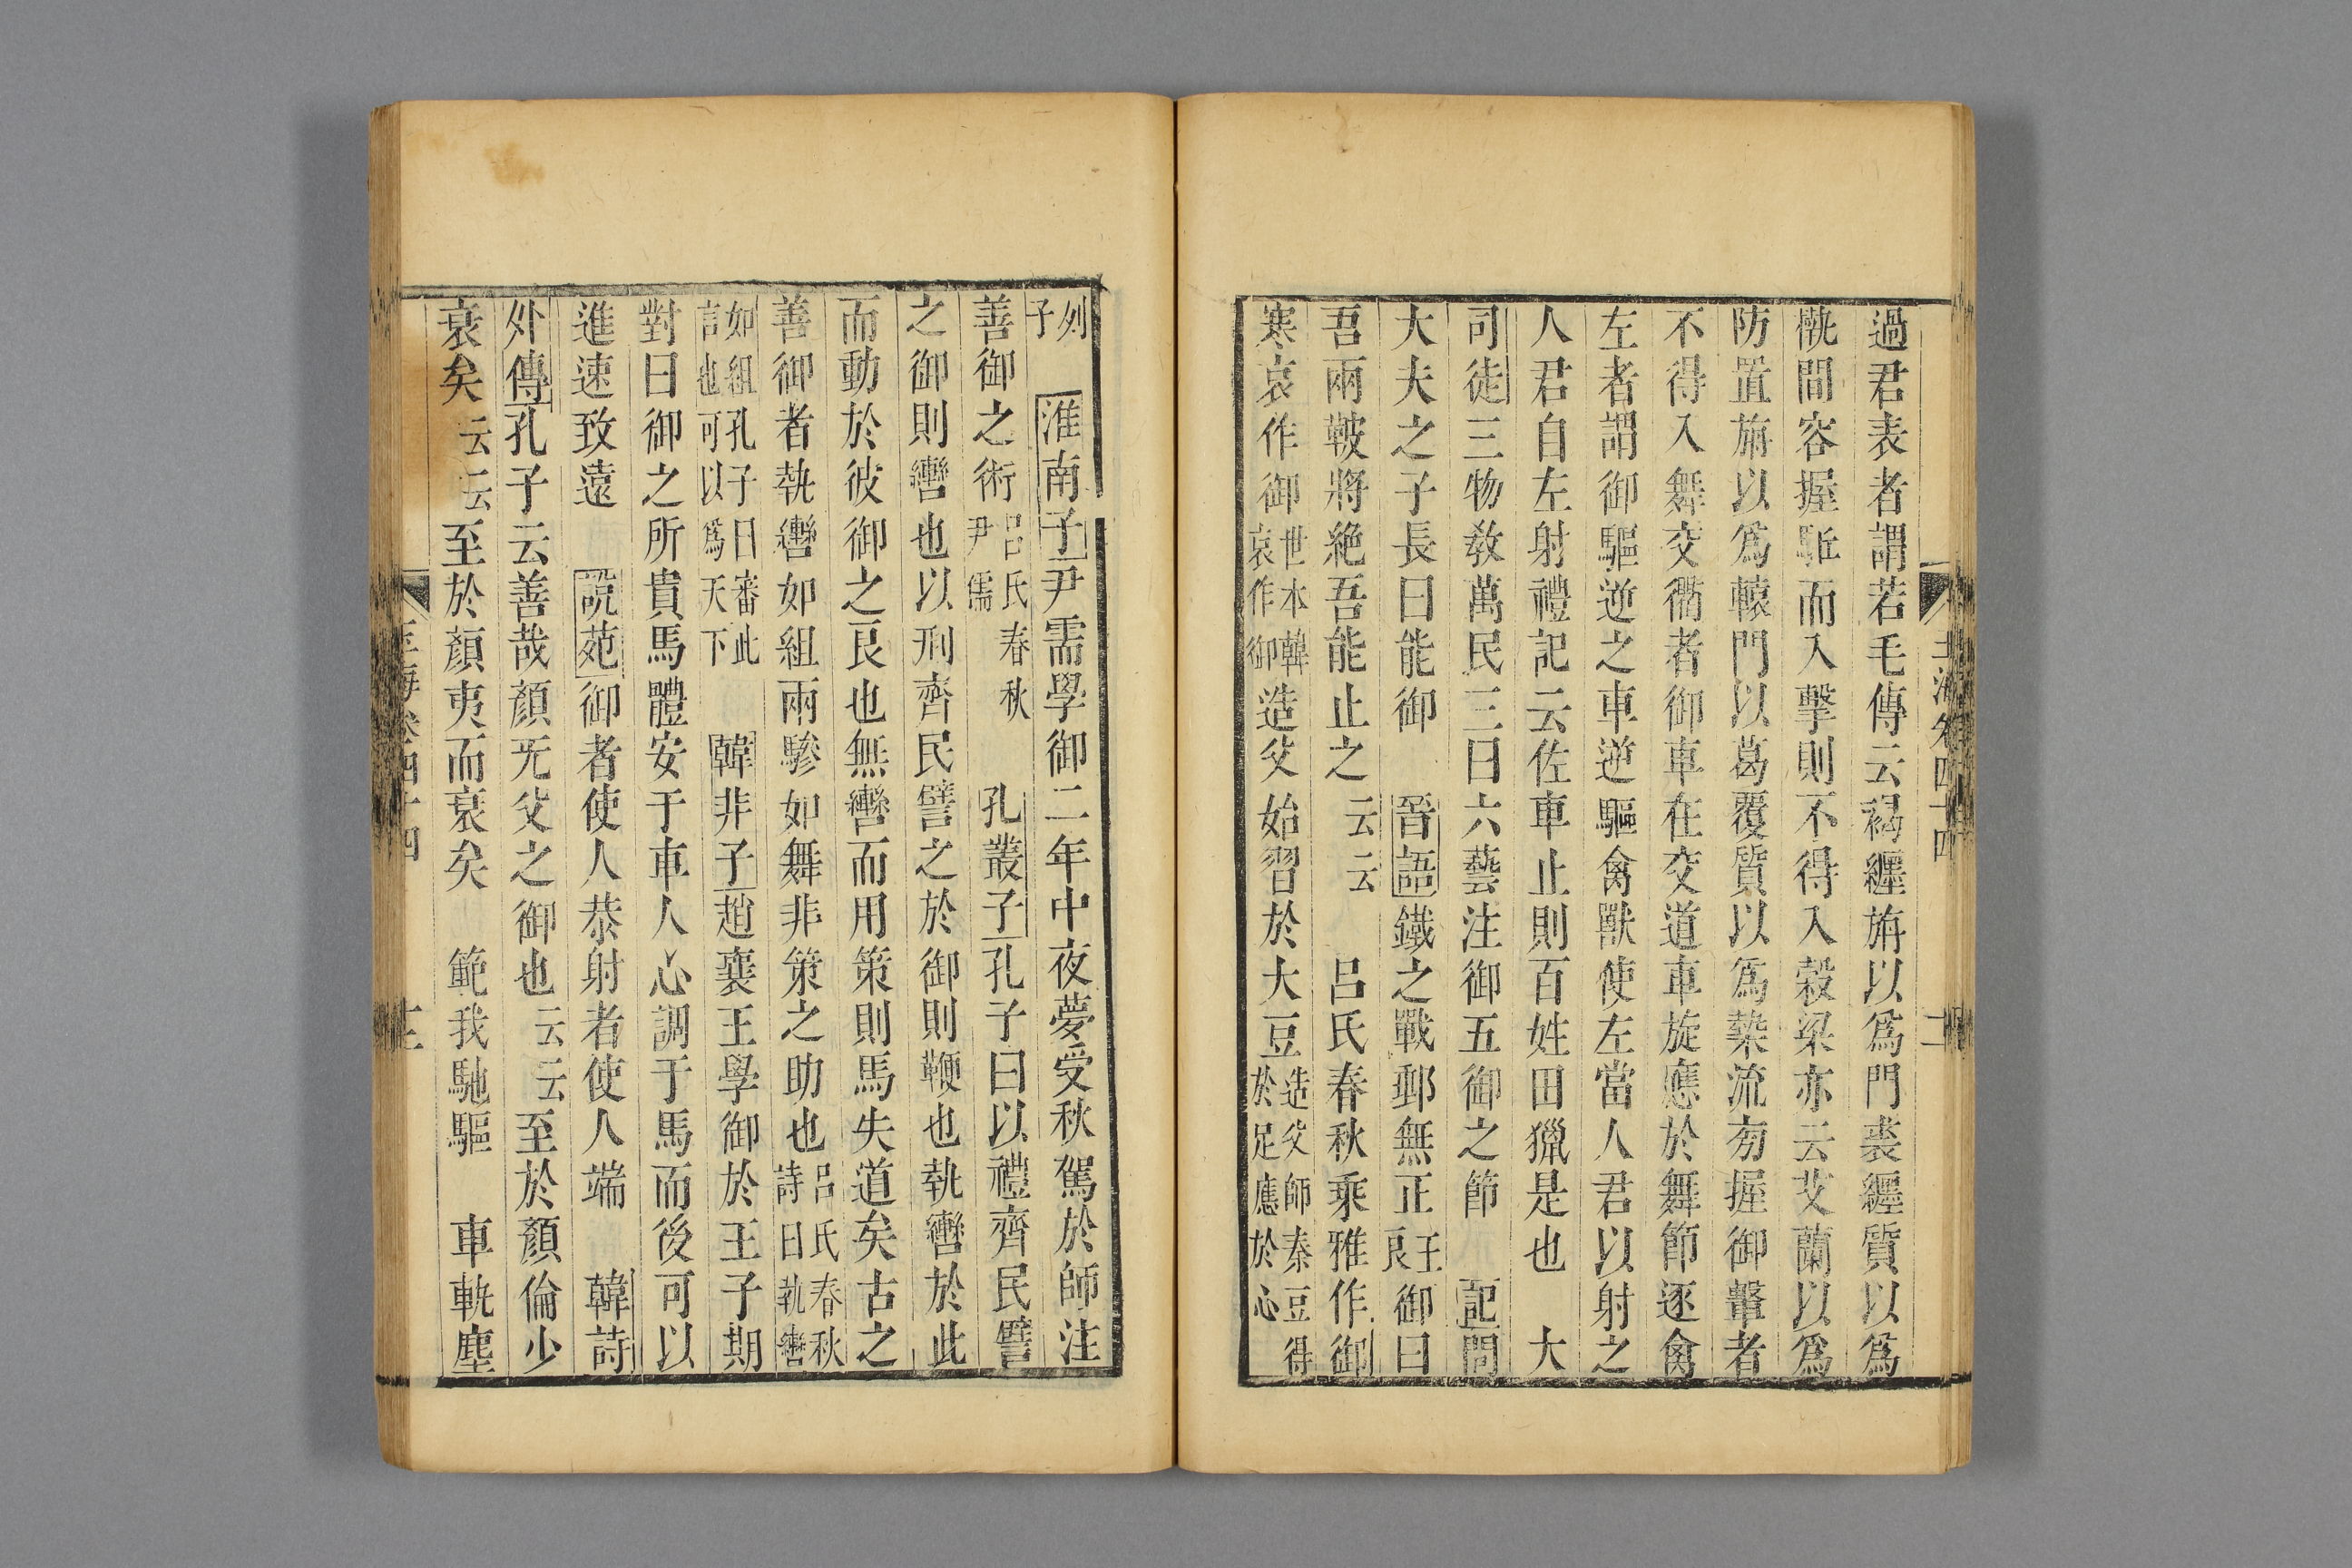 過君表者謂若毛傳云褐纏旃以爲門裘纏質以爲
槸間容握驅而入擊則不得入榖梁亦云艾蘭以爲
防置旃以爲轅門以葛覆質以爲槷流旁握御轚者
不得入舞交衢者御車在交道車旋應於舞節逐禽
左者謂御驅逆之車逆驅禽獸使左當人君以射之
人君自左射禮記云佐車止則百姓田獵是也 大
司徒三物敎萬民三曰六藝注御五御之節 記問
大夫之子長曰能御 晉語鐵之戰郵無正王良御曰
吾兩鞁將絶吾能止之云云 呂氏春秋乘雅作御
寒哀作御世本韓哀作御造父始習於大豆造父師泰豆得於足應於心
列子 淮南子尹需學御二年中夜夢受秋駕於師注
善御之術呂氏春秋尹儒 孔叢子孔子曰以禮齊民譬
之御則轡也以刑齊民譬之於御則鞭也執轡於此
而動於彼御之良也無轡而用策則馬失道矣古之
善御者執轡如組兩驂如舞非策之助也呂氏春秋詩曰執轡
如組孔子曰審此言也可以爲天下 韓非子趙襄王學御於王子期
對曰御之所貴馬體安于車人心調于馬而後可以
進速致遠 說苑御者使人恭射者使人端 韓詩
外傳孔子云善哉顏旡父之御也云云至於顏倫少
衰矣云云至於顏夷而衰矣 範我馳驅 車軼塵